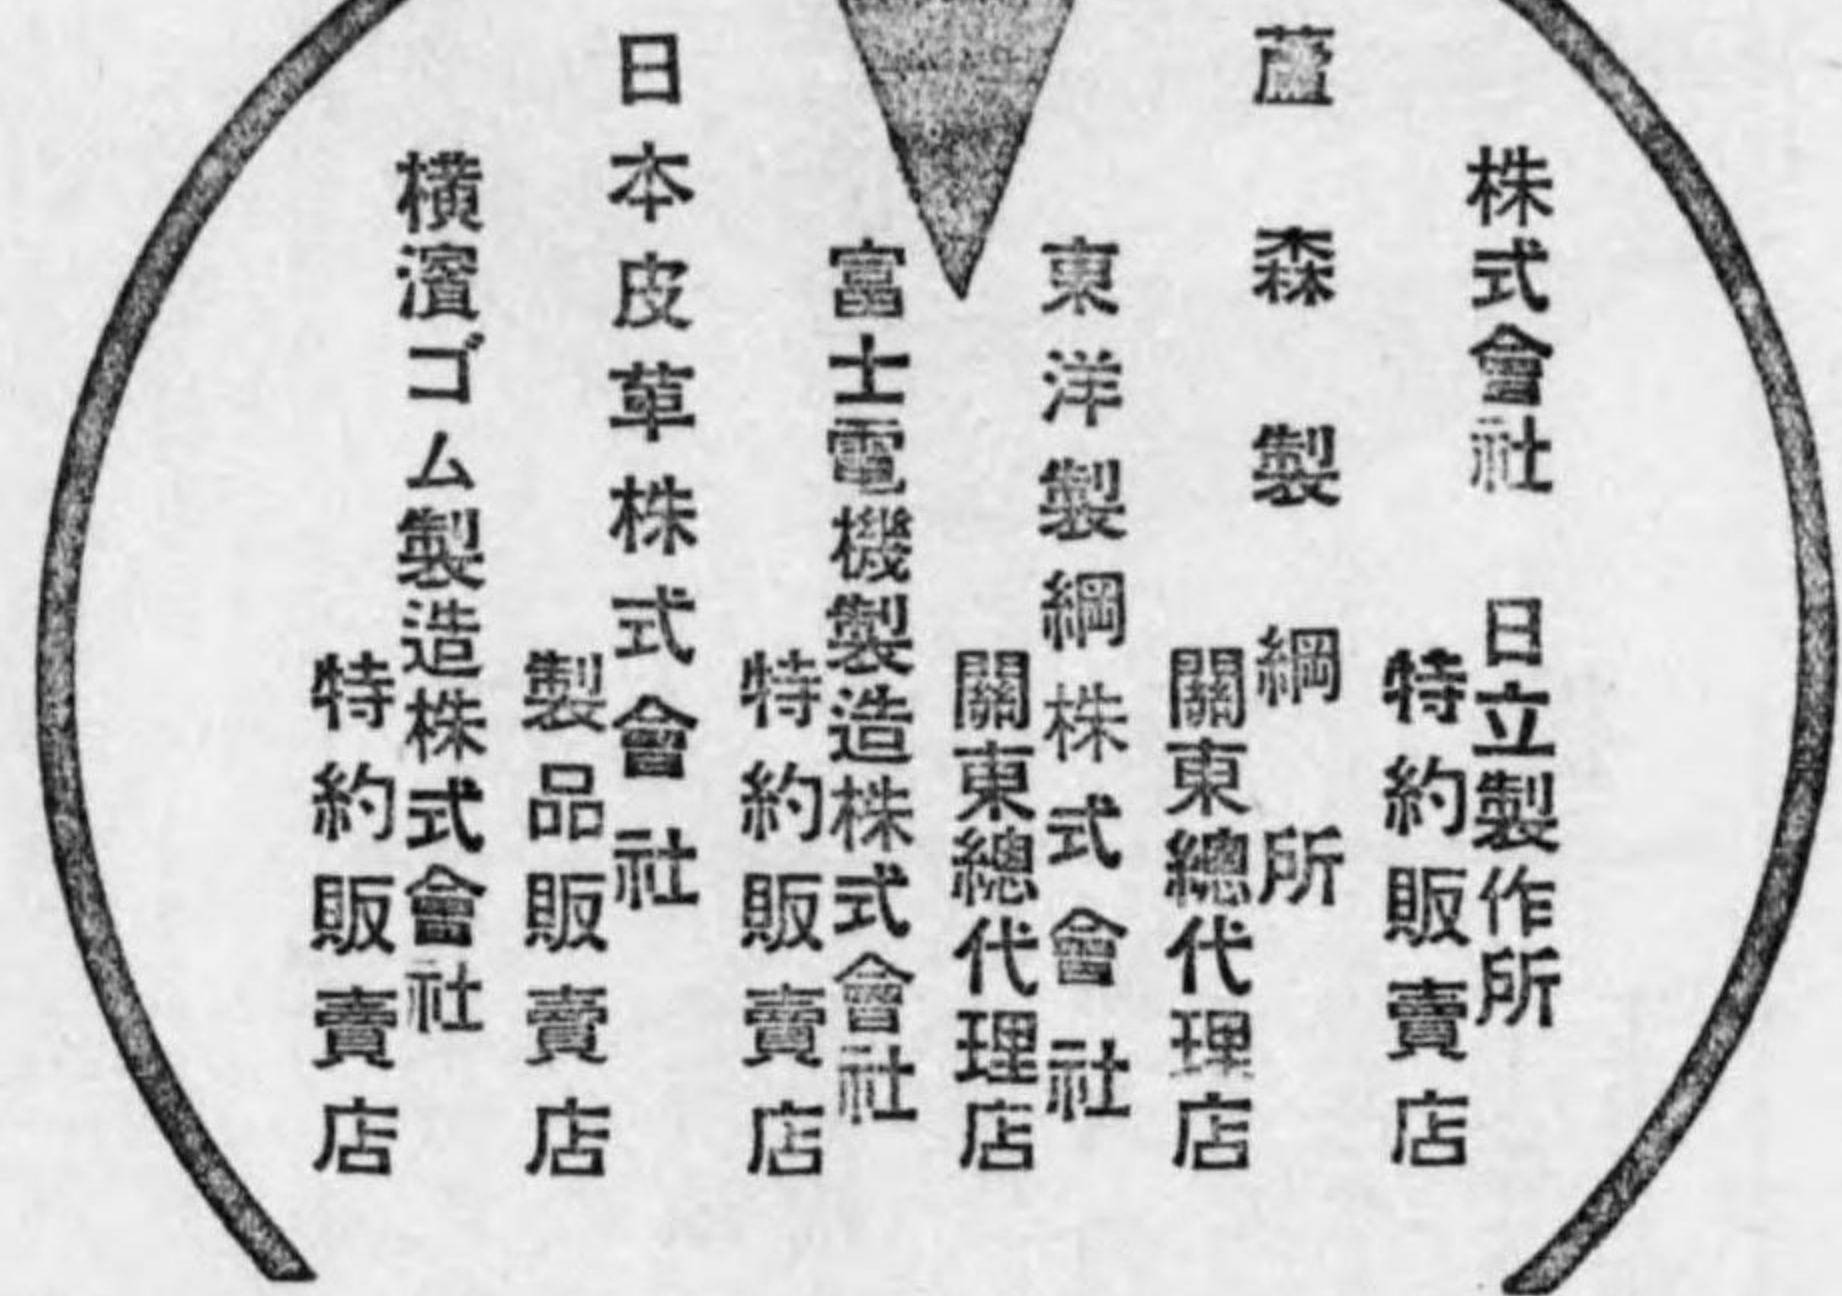 株式會社 日立製作所
特約販賣店
蘆森製綱所
關東總代理店
東洋製綱株式會社
關東總代理店
富士電機製造株式會社
特約販賣店
日本皮革株式會社
製品販賣店
横濱ゴム製造株式會社
特約販賣店